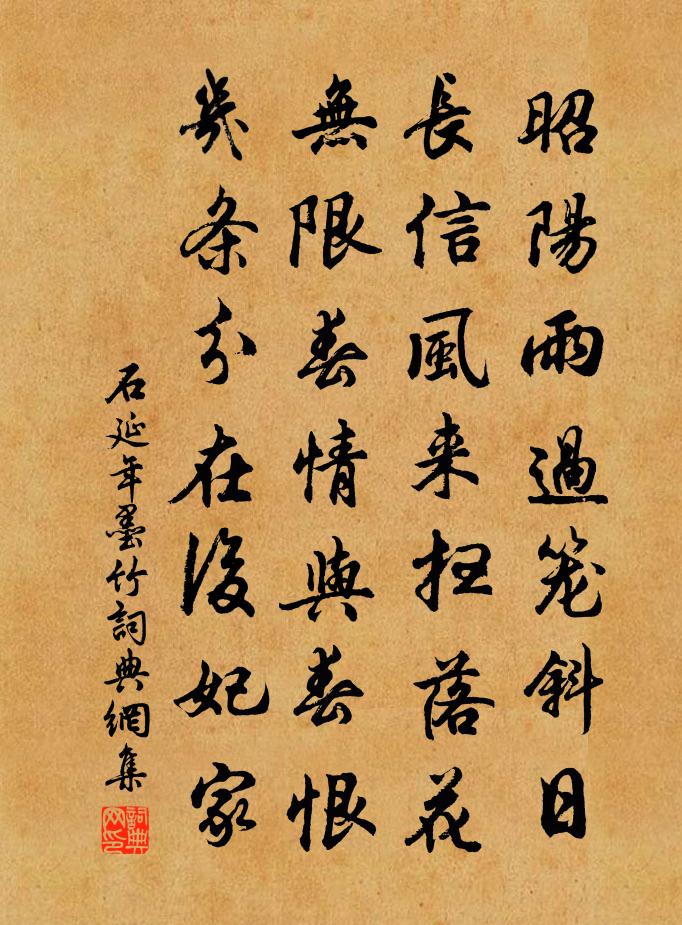 昭陽雨過笼斜日
長信風来扫落花
無限春情與春恨
幾条分在後妃家
石延年墨竹詞典網集
詞典网印